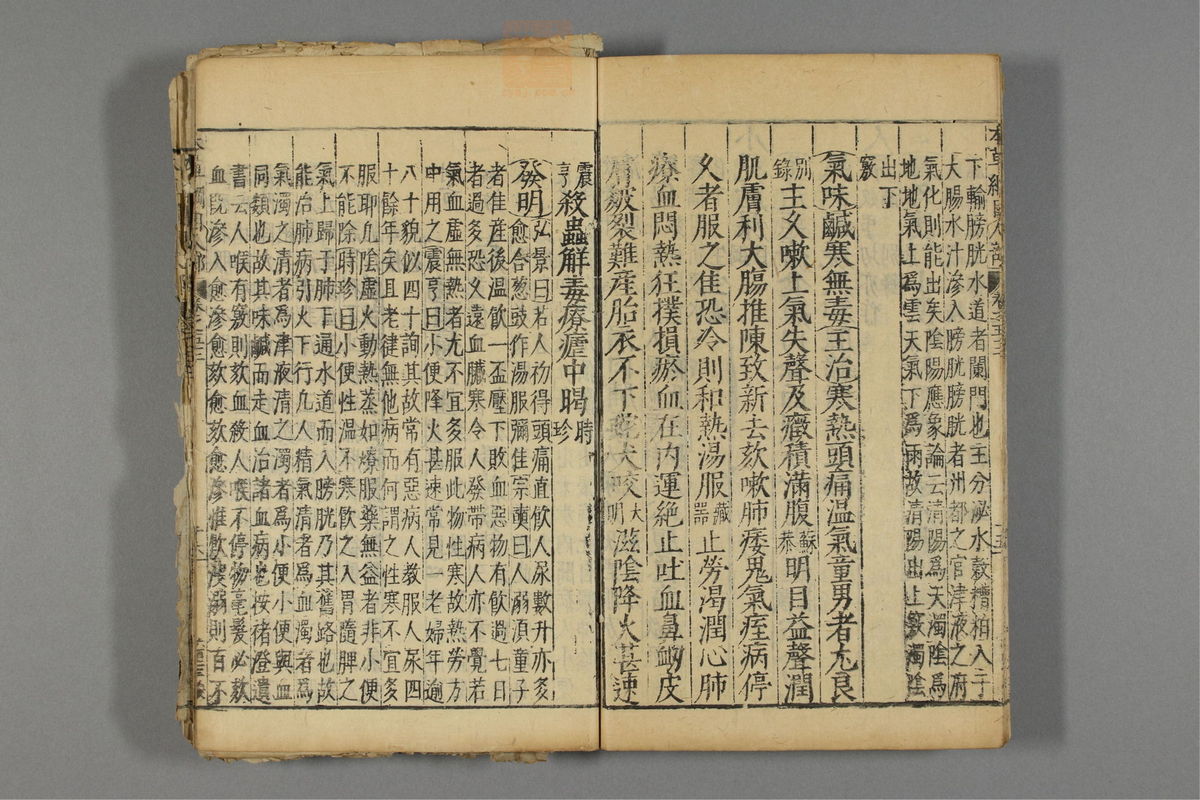 下輸膀胱水道者闌門也主分泌水穀糟粕入于
大腸水汁滲入膀胱膀胱者州都之官津液之府
氣化則能出矣陰陽應象論云清陽為天濁陰為
地地氣上為雲天氣下為雨故清陽出上竅濁陰
出下
竅
氣味鹹寒無毒主治寒熱頭痛溫氣童男者尤良
別錄主久嗽上氣失聲及癥積滿腹蘇恭明目益聲潤
肌膚利大腸推陳致新去欬嗽肺痿鬼氣痓病停
久者服之佳恐冷則和熱湯服藏器止勞渴潤心肺
療血悶熱狂撲損瘀血在內運絕止吐血鼻衄皮
膚皴裂難產胎衣不下蛇犬咬大明滋陰降火甚速
震亨殺蟲解毒療瘧中暍時珍
發明弘景曰若人初得頭痛直飲人尿數升亦多
愈合葱豉作湯服彌佳宗奭曰人溺須童子
者佳產後溫飲一盃壓下敗血惡物有飲過七日
者過多恐久遠血臟寒令人發帶病人亦不覺若
氣血虛無熱者尤不宜多服此物性寒故熱勞方
中用之震亨曰小便降火甚速常見一老婦年逾
八十貌似四十詢其故常有惡病人教服人尿四
十餘年矣且老健無他病而何謂之性寒不宜多
服耶凡陰虛火動熱蒸如燎服藥無益者非小便
不能除時珍曰小便性溫不寒飲之入胃隨脾之
氣上歸于肺下通水道而入膀胱乃其舊路也故
能治肺病引火下行凡人精氣清者為血濁者為
氣濁之清者為津液清之濁者為小便小便與血
同類也故其味鹹而走血治諸血病也按褚澄遺
書云人喉有竅則欬血殺人喉不停物毫髮必欬
血既滲入愈滲愈欬愈欬愈滲惟飲溲溺則百不